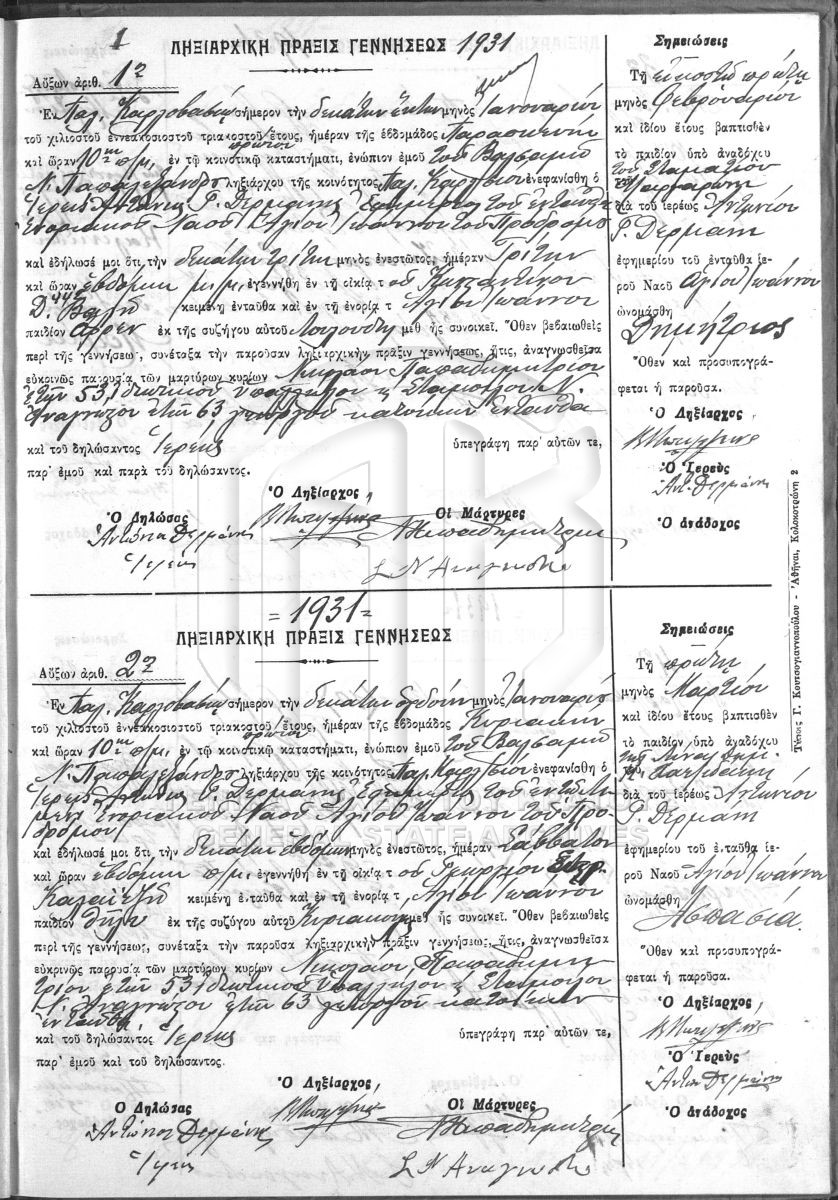 1
ΛΗΞΙΑΡΧΙΚΗ ΠΡΑΞΙΣ ΓΕΝΝΗΣΕΩΣ 1931
Αὔξων ἀριθ. 1
Ἐν Παλ. Καρλοβασίῳ σήμερον τὴν δεκάτην ἕκτην μηνὸς Ἰανουαρίου
τοῦ χιλιοστοῦ ἐννεακοσιοστοῦ τριακοστοῦ πρώτου ἔτους, ἡμέραν τῆς ἑβδομάδος Παρασκευὴν
καὶ ὥραν 10 π.μ. ἐν τῷ κοινοτικῷ καταστήματι, ἐνώπιον ἐμοῦ τοῦ Βαλσαμῆ
Ν. Παπαλεξάνδρου ληξιάρχου τῆς κοινότητος Παλ. Καρλ/σίου ἐνεφανίσθη ὁ
Ἱερεὺς Ἀντώνιος Γ. Δερμάνης Ἐφημέριος τοῦ ἐνταῦθα
Ἐνοριακοῦ Ναοῦ Ἁγίου Ἰωάννου τοῦ Προδρόμου
καὶ ἐδήλωσέ μοι ὅτι, τὴν δεκάτην τρίτην μηνὸς ἐνεστῶτος, ἡμέραν Τρίτην
καὶ ὥραν ἑβδόμην μ.μ. ἐγεννήθη ἐν τῇ οἰκίᾳ τοῦ
Δ. κειμένῃ ἐνταῦθα καὶ ἐν τῇ ἐνορίᾳ τ Ἁγίου Ἰωάννου
παιδίον ἄρρεν ἐκ τῆς συζύγου αὐτοῦ Λουλούδη μεθ' ἧς συνοικεῖ. Ὅθεν βεβαιωθεὶς
περὶ τῆς γεννήσεως, συνέταξα τὴν παροῦσαν ληξιαρχικὴν πρᾶξιν γεννήσεως, ἥτις, ἀναγνωσθεῖσα
εὐκρινῶς παρουσίᾳ τῶν μαρτύρων κυρίων Νικολάου Παπαδημητρίου
ἐτῶν 53, ἰδιωτικοῦ ὑπαλλήλου Σταματούλου Ν.
Ἀναγνώστου ἐτῶν 63 γεωργοῦ κατοίκων ἐνταῦθα
καὶ τοῦ δηλώσαντος Ἱερέως ὑπεγράφη παρ' αὐτῶν τε,
παρ' ἐμοῦ καὶ παρὰ τοῦ δηλώσαντος.
Ὁ Ληξίαρχος,
Ὁ Δηλώσας
Οἱ Μάρτυρες
Ἀντώνιος Δερμάνης
Ν Παπαδημητρίου
Ἱερεὺς
Σ Ν Αναγνώστου
Σημειώσεις
Τῇ εἰκοστῇ πρώτῃ
μηνὸς Φεβρουαρίου
καὶ ἰδίου ἔτους βαπτισθὲν
τὸ παιδίον ὑπὸ ἀναδόχου
τοῦ Σταματίου
διὰ τοῦ ἱερέως Ἀντωνίου
Γ. Δερμάνη
ἐφημερίου τοῦ ἐνταῦθα ἱε-
ροῦ Ναοῦ Ἁγίου Ἰωάννου
ὠνομάσθη
Δημήτριος
Ὅθεν καὶ προσυπογρά-
φεται ἡ παροῦσα.
Ὁ Ληξίαρχος
Ὁ Ἱερεὺς
Ἀντ. Δερμάνης
Ὁ ἀνάδοχος
Τύποις Γ. Κουτσογιαννοπούλου - Ἀθῆναι, Κολοκοτρώνη 2
=1931=
ΛΗΞΙΑΡΧΙΚΗ ΠΡΑΞΙΣ ΓΕΝΝΗΣΕΩΣ
Αὔξων ἀριθ. 2
Ἐν Παλ. Καρλοβασίῳ σήμερον τὴν δεκάτην ὀγδόην μηνὸς Ἰανουαρίου
τοῦ χιλιοστοῦ ἐννεακοσιοστοῦ τριακοστοῦ πρώτου ἔτους, ἡμέραν τῆς ἑβδομάδος Κυριακὴν
καὶ ὥραν 10 π.μ. ἐν τῷ κοινοτικῷ καταστήματι, ἐνώπιον ἐμοῦ τοῦ Βαλσαμῆ
Ν. Παπαλεξάνδρου ληξιάρχου τῆς κοινότητος Παλ. Καρλ/σίου ἐνεφανίσθη ὁ
Ἱερεὺς Ἀντώνιος Γ. Δερμάνης Ἐφημέριος τοῦ ἐνταῦθα
Ἐνοριακοῦ Ναοῦ Ἁγίου Ἰωάννου τοῦ Προ-
δρόμου
καὶ ἐδήλωσέ μοι ὅτι, τὴν δεκάτην ἑβδόμην μηνὸς ἐνεστῶτος, ἡμέραν Σάββατον
καὶ ὥραν ἑβδόμην π.μ. ἐγεννήθη ἐν τῇ οἰκίᾳ τοῦ Γεωργίου
κειμένῃ ἐνταῦθα καὶ ἐν τῇ ἐνορίᾳ τ. Ἁγίου Ἰωάννου
παιδίον θῆλυ ἐκ τῆς συζύγου αὐτοῦ Κυριακοῦς μεθ' ἧς συνοικεῖ. Ὅθεν βεβαιωθεὶς
περὶ τῆς γεννήσεως, συνέταξα τὴν παροῦσα ληξιαρχικὴν πρᾶξιν γεννήσεως, ἥτις, ἀναγνωσθεῖσα
εὐκρινῶς παρουσίᾳ τῶν μαρτύρων κυρίων Νικολάου Παπαδημη-
τρίου ἐτῶν 53 ἰδιωτικοῦ ὑπαλλήλου Σταματούλου
Ν. Ἀναγνώστου ἐτῶν 63 γεωργοῦ κατοίκων
ἐνταῦθα
καὶ τοῦ δηλώσαντος Ἱερέως ὑπεγράφη παρ' αὐτῶν τε,
παρ' ἐμοῦ καὶ τοῦ δηλώσαντος.
Ὁ Ληξίαρχος,
Ὁ Δηλώσας
Οἱ Μάρτυρες
Ἀντώνιος Δερμάνης
Ν Παπαδημητρίου
Ἱερεὺς
Σ Ν Αναγνώστου
Σημειώσεις
Τῇ πρώτῃ
μηνὸς Μαρτίου
καὶ ἰδίου ἔτους βαπτισθὲν
τὸ παιδίον ὑπὸ ἀναδόχου
διὰ τοῦ ἱερέως Ἀντωνίου
Γ. Δερμάνη
ἐφημερίου τοῦ ἐνταῦθα ἱε-
ροῦ Ναοῦ Ἁγίου Ἰωάννου
ὠνομάσθη
Ἀσπασία.
Ὅθεν καὶ προσυπογρά-
φεται ἡ παροῦσα.
Ὁ Ληξίαρχος,
Ὁ Ἱερεὺς
Ἀντων Δερμάνης
Ὁ ἀνάδοχος
GENERAL STATE ARCHIVES